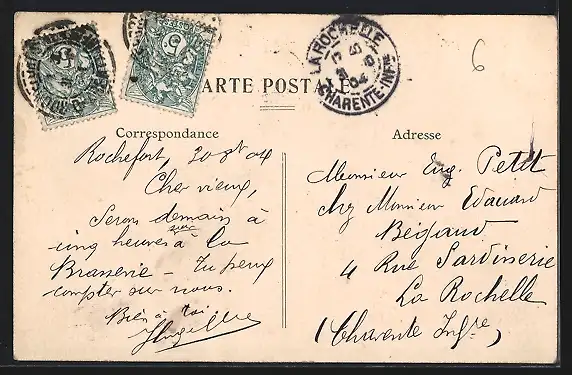 LA ROCHELLE
CHARENTE-INFRE
6
CARTE POSTALE
Correspondance
Rochefort, 20-8t 04
Cher vieux,
Serons demain à
cinq heures à la
Brasserie - Tu peux
compter sur nous.
Bien à toi
Adresse
Monsieur Eug. Petit
chez Monsieur Edouard
Bégaud
4 Rue Jardinerie
La Rochelle
(Charente Infre)